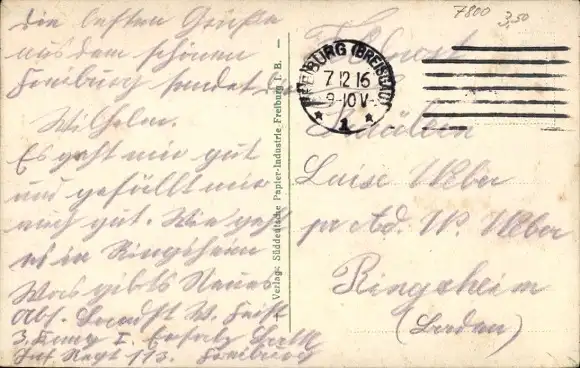 die besten Grüße
aus dem schönen
Freiburg sendet
Wilhelm.
Es geht mir gut
und gefällt mir
auch gut. Wie geht
es in Ringsheim
Was gibts Neues
Abs. Landst W. Feist
3. Komp I. Ersatz Batl
Inf Regt 113. Freiburg
Verlag: Süddeutsche Papier-Industrie Freiburg i. B.
7800
3,50
FREIBURG (BREISGAU)
7 12 16
9-10 V
* 1 *
Fräulein
Luise Weber
pr Ad. W. Weber
Ringsheim
(Baden)